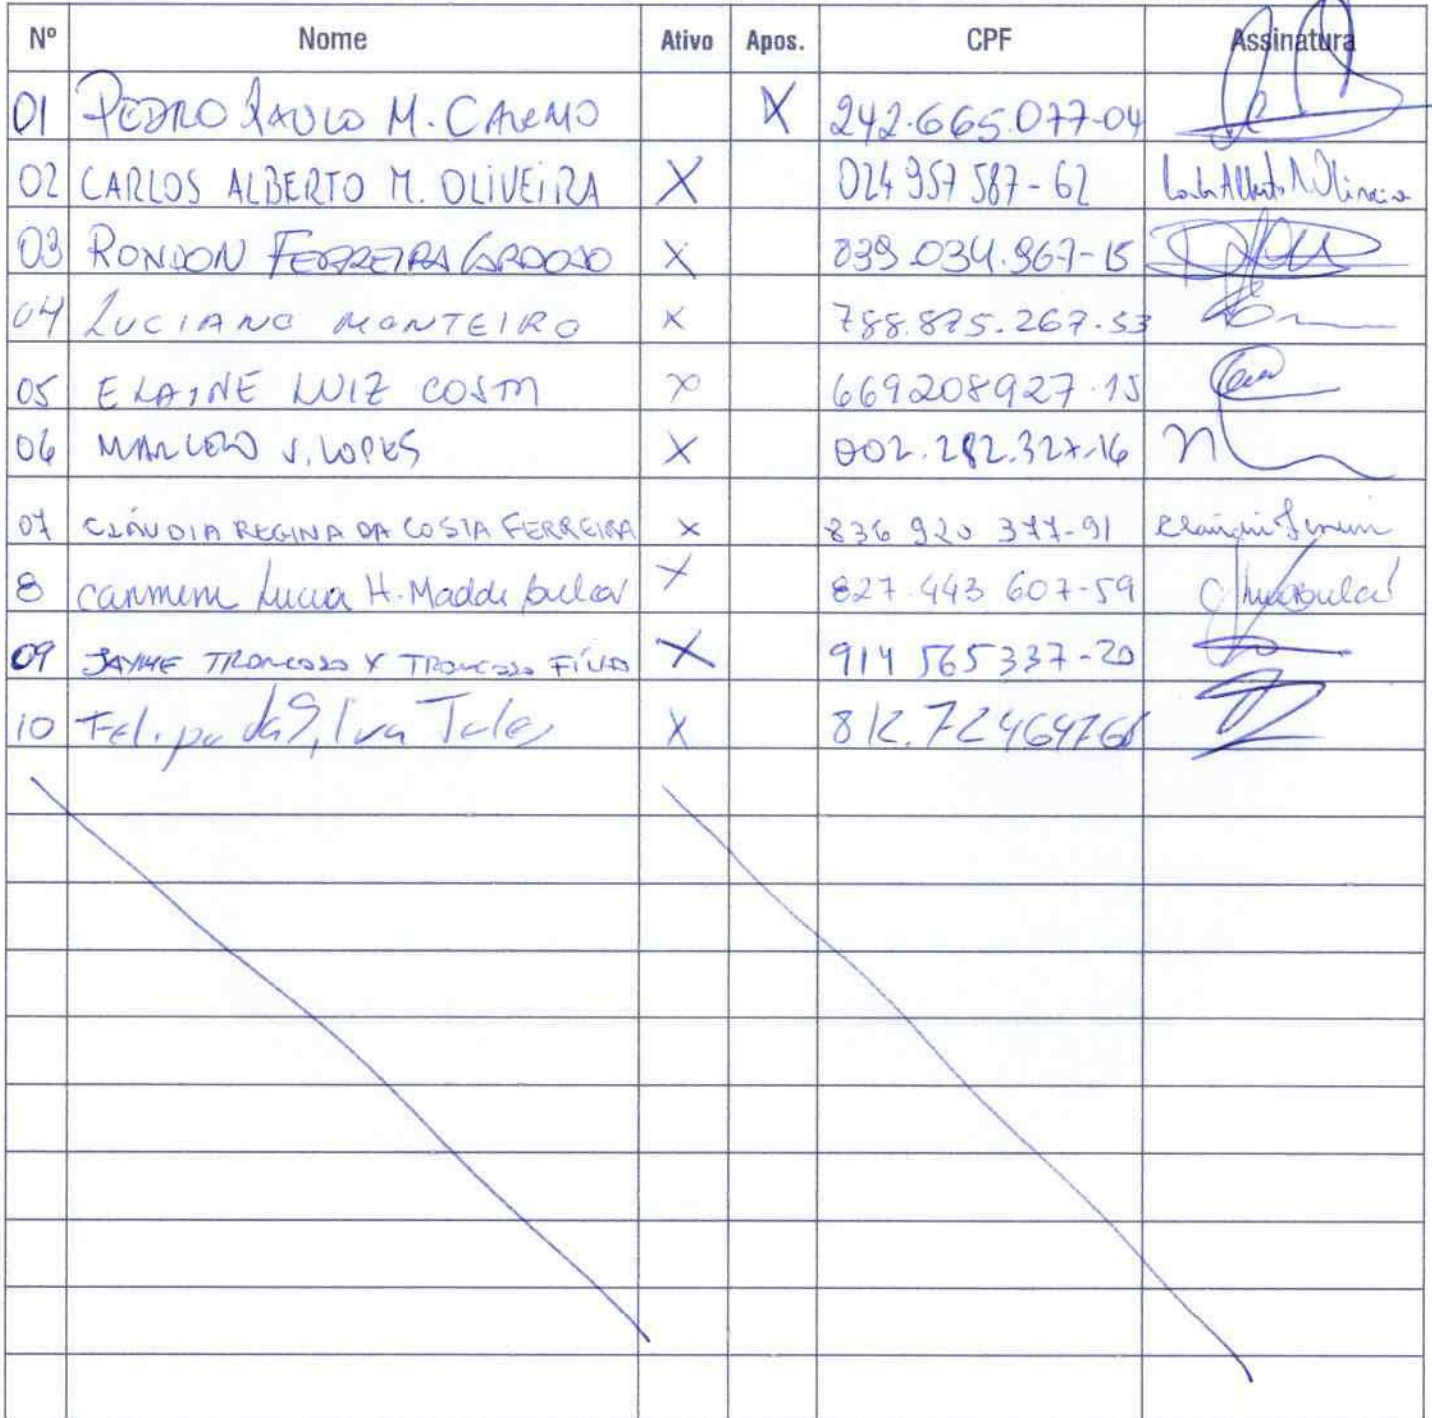 Nº Nome Ativo Apos. CPF Assinatura
01 PEDRO PAULO M. X 242.665.077-04
02 CARLOS ALBERTO M. OLIVEIRA X 024 957 587-62 Alberto
03 RONDON FERREIRA CARDOSO X 839.034.967-15
04 LUCIANO MONTEIRO X 788.875.267.53
05 ELAINE LUIZ COSTA X 669208927.15
06 MARCELO S. LOPES X 002.282.327-16
07 CLÁUDIA REGINA DA COSTA FERREIRA X 836 920 377-91
8 Carmem Lucia H. X 827.443 607-59
09 JAYME TRONCOSO Y TRONCOSO FILHO X 914 565337-20
10 Felipe da Silva Teles X